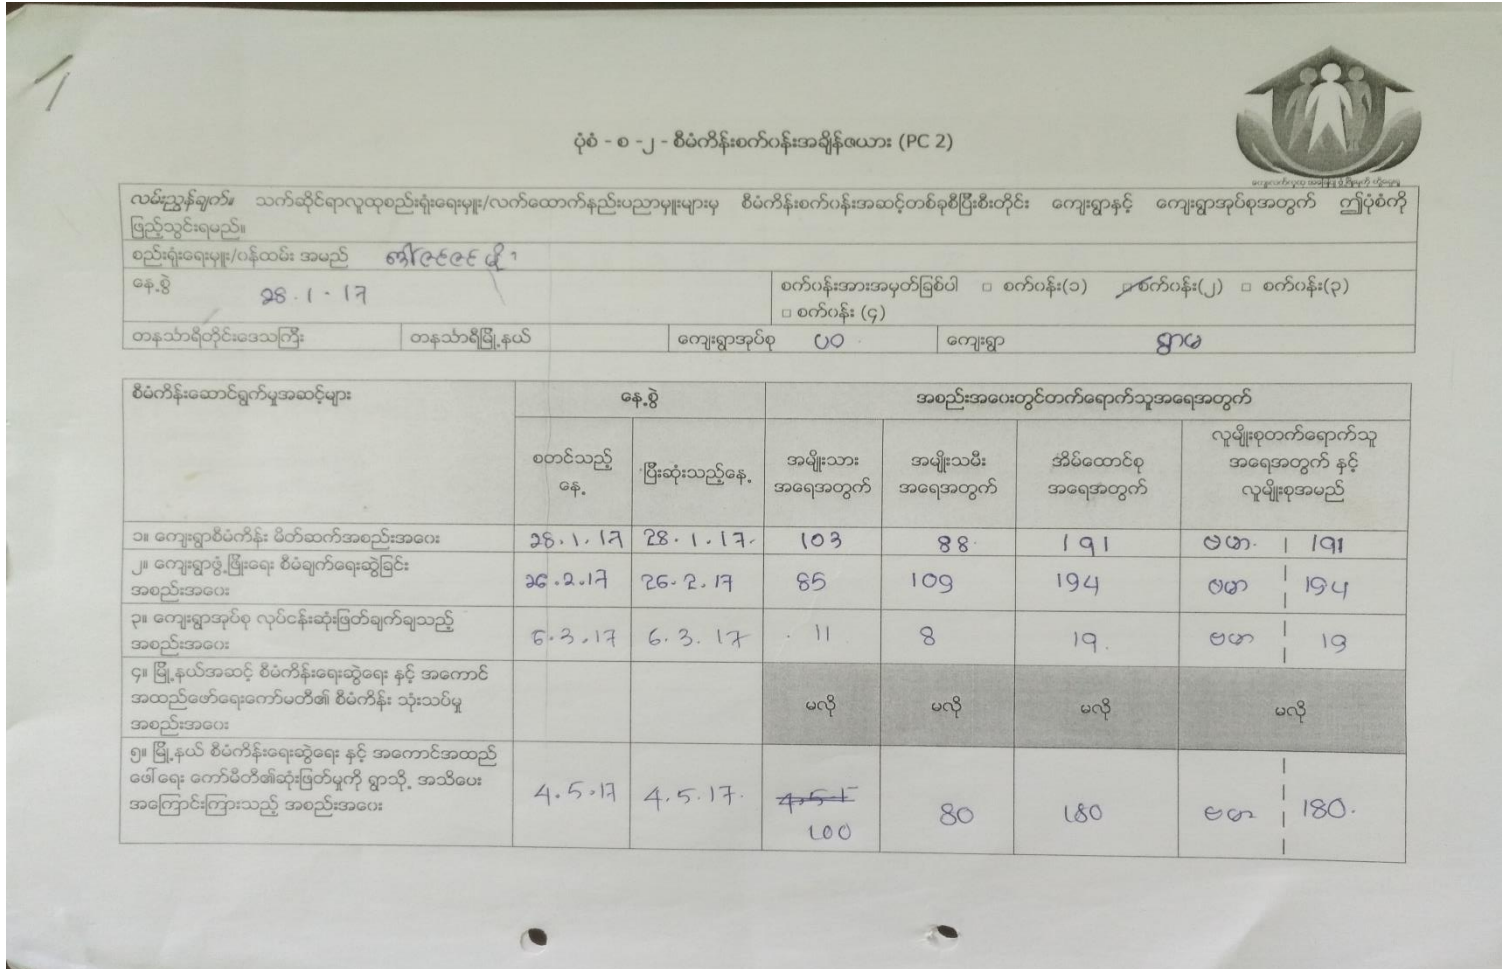 ပုံစံ - စ -၂ - စီမံကိန်းစက်ပန်းအချိန်ဇယား (PC 2)
လမ်းညွှန်ချက်။ သက်ဆိုင်ရာလူထုစည်းရုံးရေးမှူး/လက်ထောက်နည်းပညာမှူးများမှ စီမံကိန်းစက်ပန်းအဆင့်တစ်ခုစီပြီးစီးတိုင်း ကျေးရွာနှင့် ကျေးရွာအုပ်စုအတွက် ဤပုံစံကို
ဖြည့်သွင်းရမည်။
စည်းရုံးရေးမှူး/ဝန်ထမ်း အမည်
နေ့စွဲ 28.1.17 စက်ပန်းအားအမှတ်ခြစ်ပါ □ စက်ပန်း(၁) □ စက်ပန်း(၂) □ စက်ပန်း(၃)
□ စက်ပန်း (၄)
တနင်္သာရီတိုင်းဒေသကြီး တနင်္သာရီမြို့နယ် ကျေးရွာအုပ်စု ပဝ ကျေးရွာ ရွာမ
စီမံကိန်းဆောင်ရွက်မှုအဆင့်များ နေ့စွဲ အစည်းအဝေးတွင်တက်ရောက်သူအရေအတွက်
စတင်သည့် နေ့ ပြီးဆုံးသည့်နေ့ အမျိုးသား အရေအတွက် အမျိုးသမီး အရေအတွက် အိမ်ထောင်စု အရေအတွက် လူမျိုးစုတက်ရောက်သူ အရေအတွက် နှင့် လူမျိုးစုအမည်
၁။ ကျေးရွာစီမံကိန်း မိတ်ဆက်အစည်းအဝေး 28.1.17 28.1.17. 103 88. 191 ဗမာ. 191
၂။ ကျေးရွာဖွံ့ဖြိုးရေး စီမံချက်ရေးဆွဲခြင်း
အစည်းအဝေး 26.2.17 26.2.17 85 109 194 ဗမာ 194
၃။ ကျေးရွာအုပ်စု လုပ်ငန်းဆုံးဖြတ်ချက်ချသည့်
အစည်းအဝေး 6.3.17 6.3.17 11 8 19. ဗမာ 19
၄။ မြို့နယ်အဆင့် စီမံကိန်းရေးဆွဲရေး နှင့် အကောင်
အထည်ဖော်ရေးကော်မတီ၏ စီမံကိန်း သုံးသပ်မှု
အစည်းအဝေး မလို မလို မလို မလို
၅။ မြို့နယ် စီမံကိန်းရေးဆွဲရေး နှင့် အကောင်အထည်
ဖေါ်ရေး ကော်မီတီ၏ဆုံးဖြတ်မှုကို ရွာသို့ အသိပေး
အကြောင်းကြားသည့် အစည်းအဝေး 4.5.17 4.5.17. 100 80 180 ဗမာ 180.